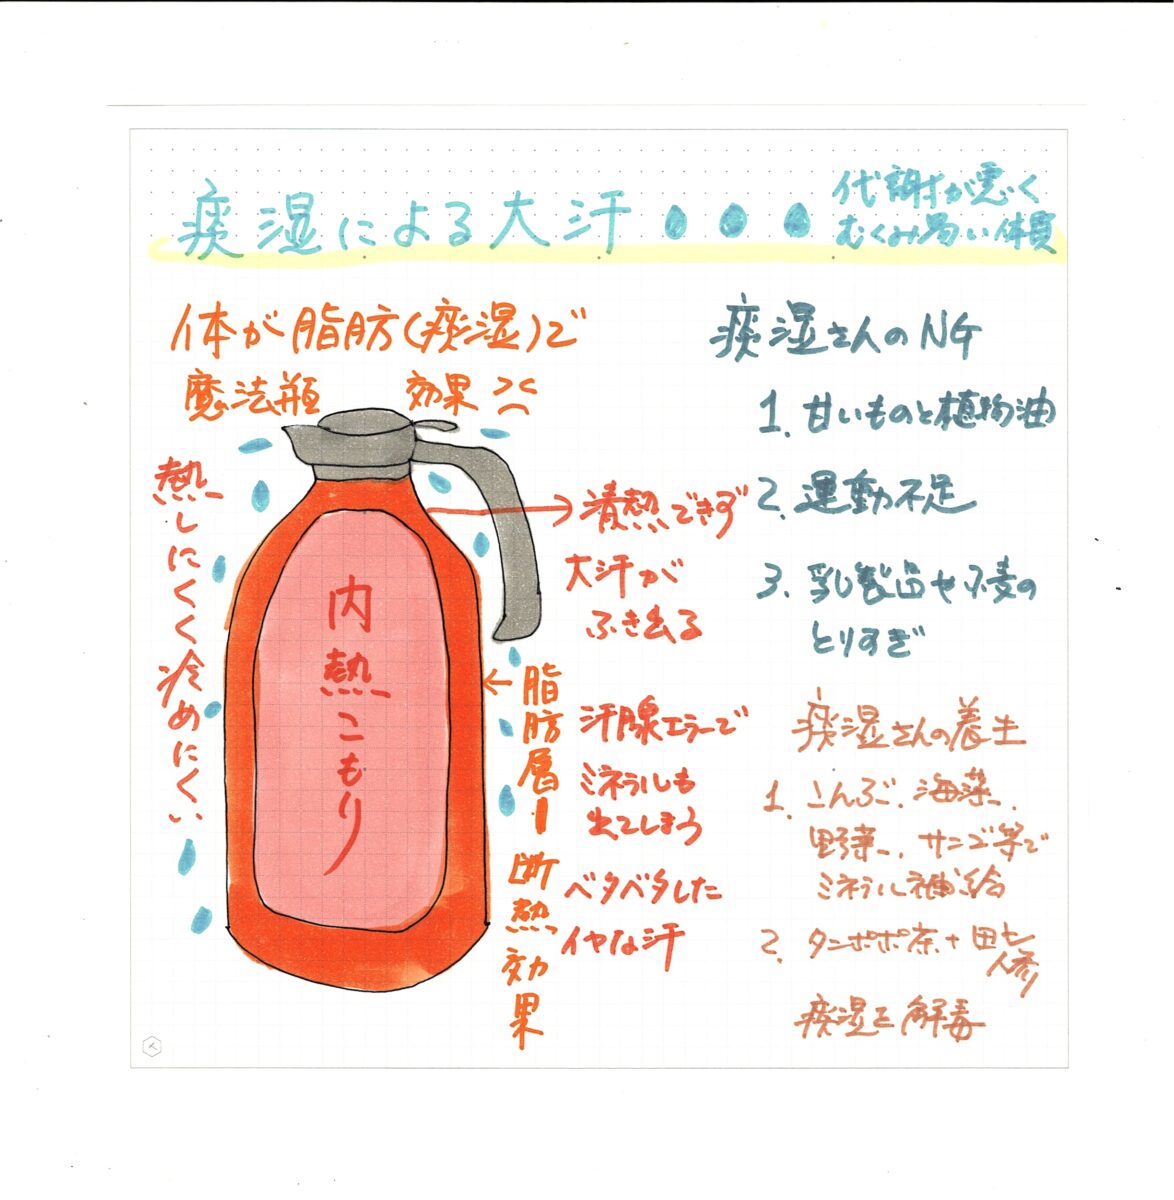 痰湿による大汗
代謝が悪く
むくみ易い体質
体が脂肪(痰湿)で
魔法瓶 効果
熱しにくく冷めにくい
内熱こもり
清熱できず
大汗が
ふき出る
脂肪層 断熱効果
汗腺エラーで
ミネラルも
出てしまう
ベタベタした
イヤな汗
痰湿さんのNG
1. 甘いものと植物油
2. 運動不足
3. 乳製品や小麦の
とりすぎ
痰湿さんの養生
1. こんぶ、海藻、
野菜、サンゴ等で
ミネラル補給
2. タンポポ茶+田七
人参
痰湿を解毒